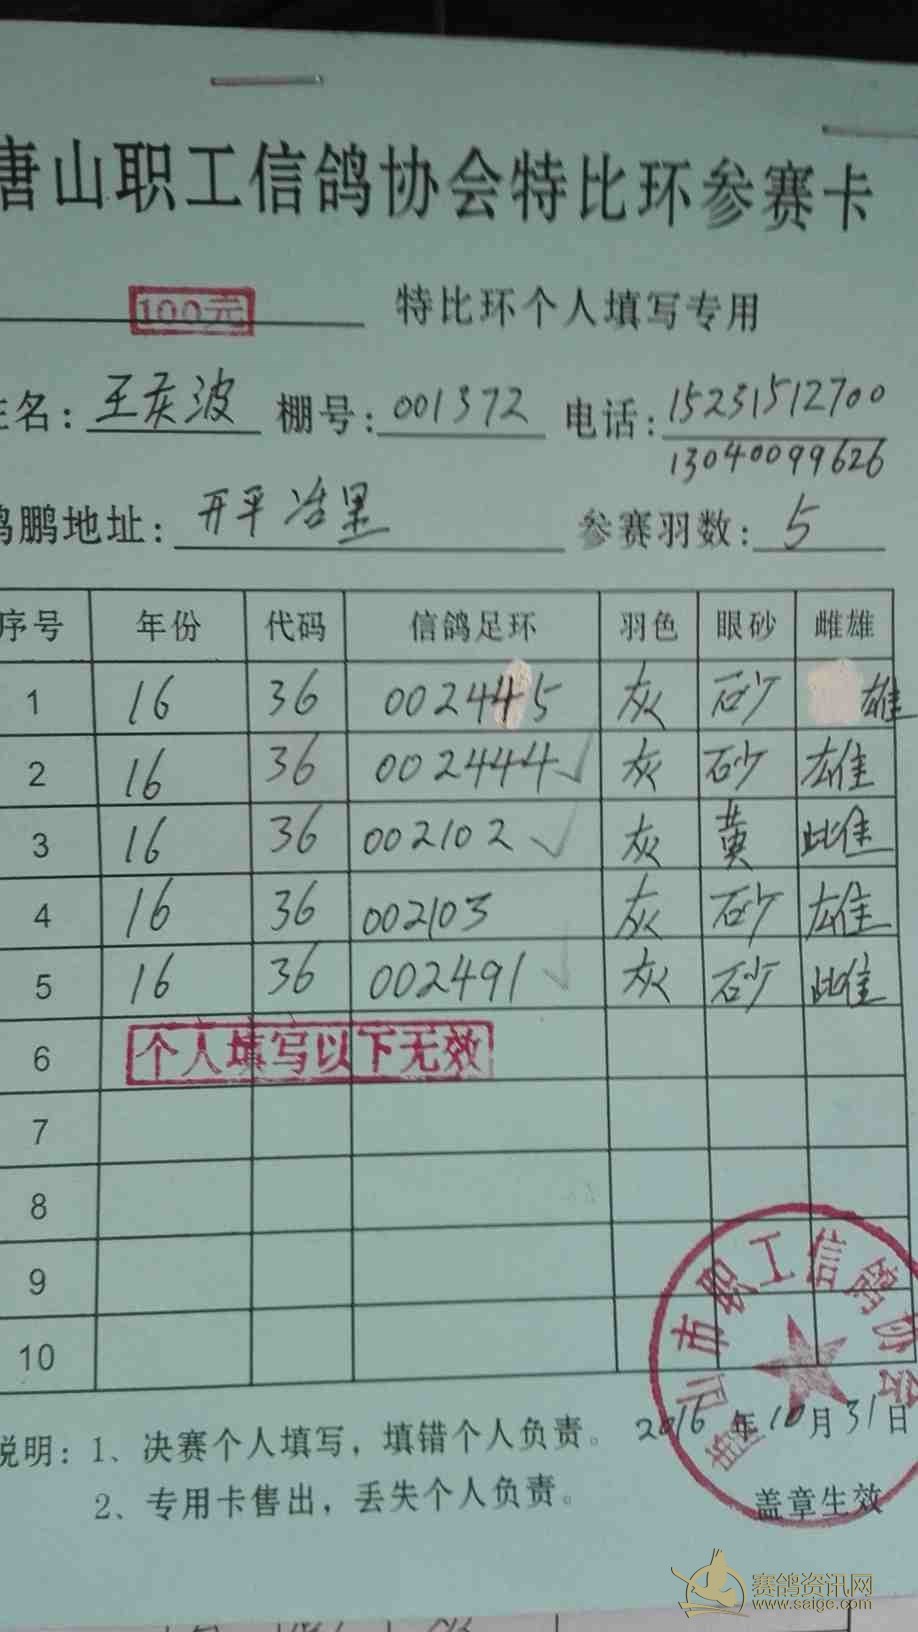 唐山职工信鸽协会特比环参赛卡
100元 特比环个人填写专用
姓名: 王 波 棚号: 001372 电话: 15231512700
13040099626
鸽鹏地址: 开平 里 参赛羽数: 5
序号 年份 代码 信鸽足环 羽色 眼砂 雌雄
1 16 36 002445 灰 砂 雄
2 16 36 002444 灰 砂 雄
3 16 36 002102 灰 黄 雌
4 16 36 002103 灰 砂 雄
5 16 36 002491 灰 砂 雌
6 个人填写以下无效
7
8
9
10
唐山市职工信鸽协会
说明: 1、决赛个人填写，填错个人负责。 2016年10月31日
2、专用卡售出，丢失个人负责。 盖章生效
赛鸽资讯网
www.saigc.com